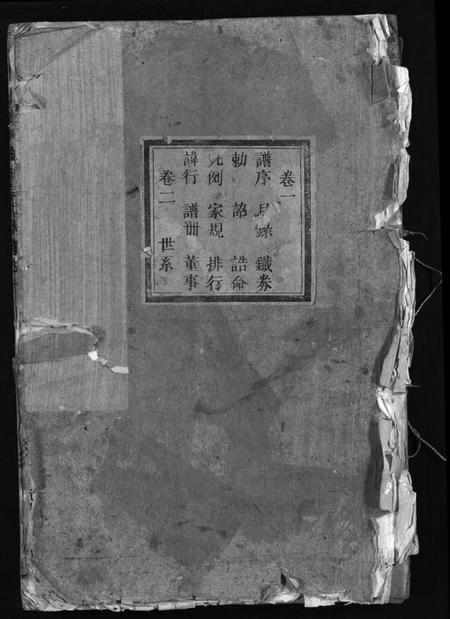 卷一
譜序 目錄 鐵券
勅 詔 誥命
凡例 家規 排行
諱行 譜冊 董事
卷二 世系